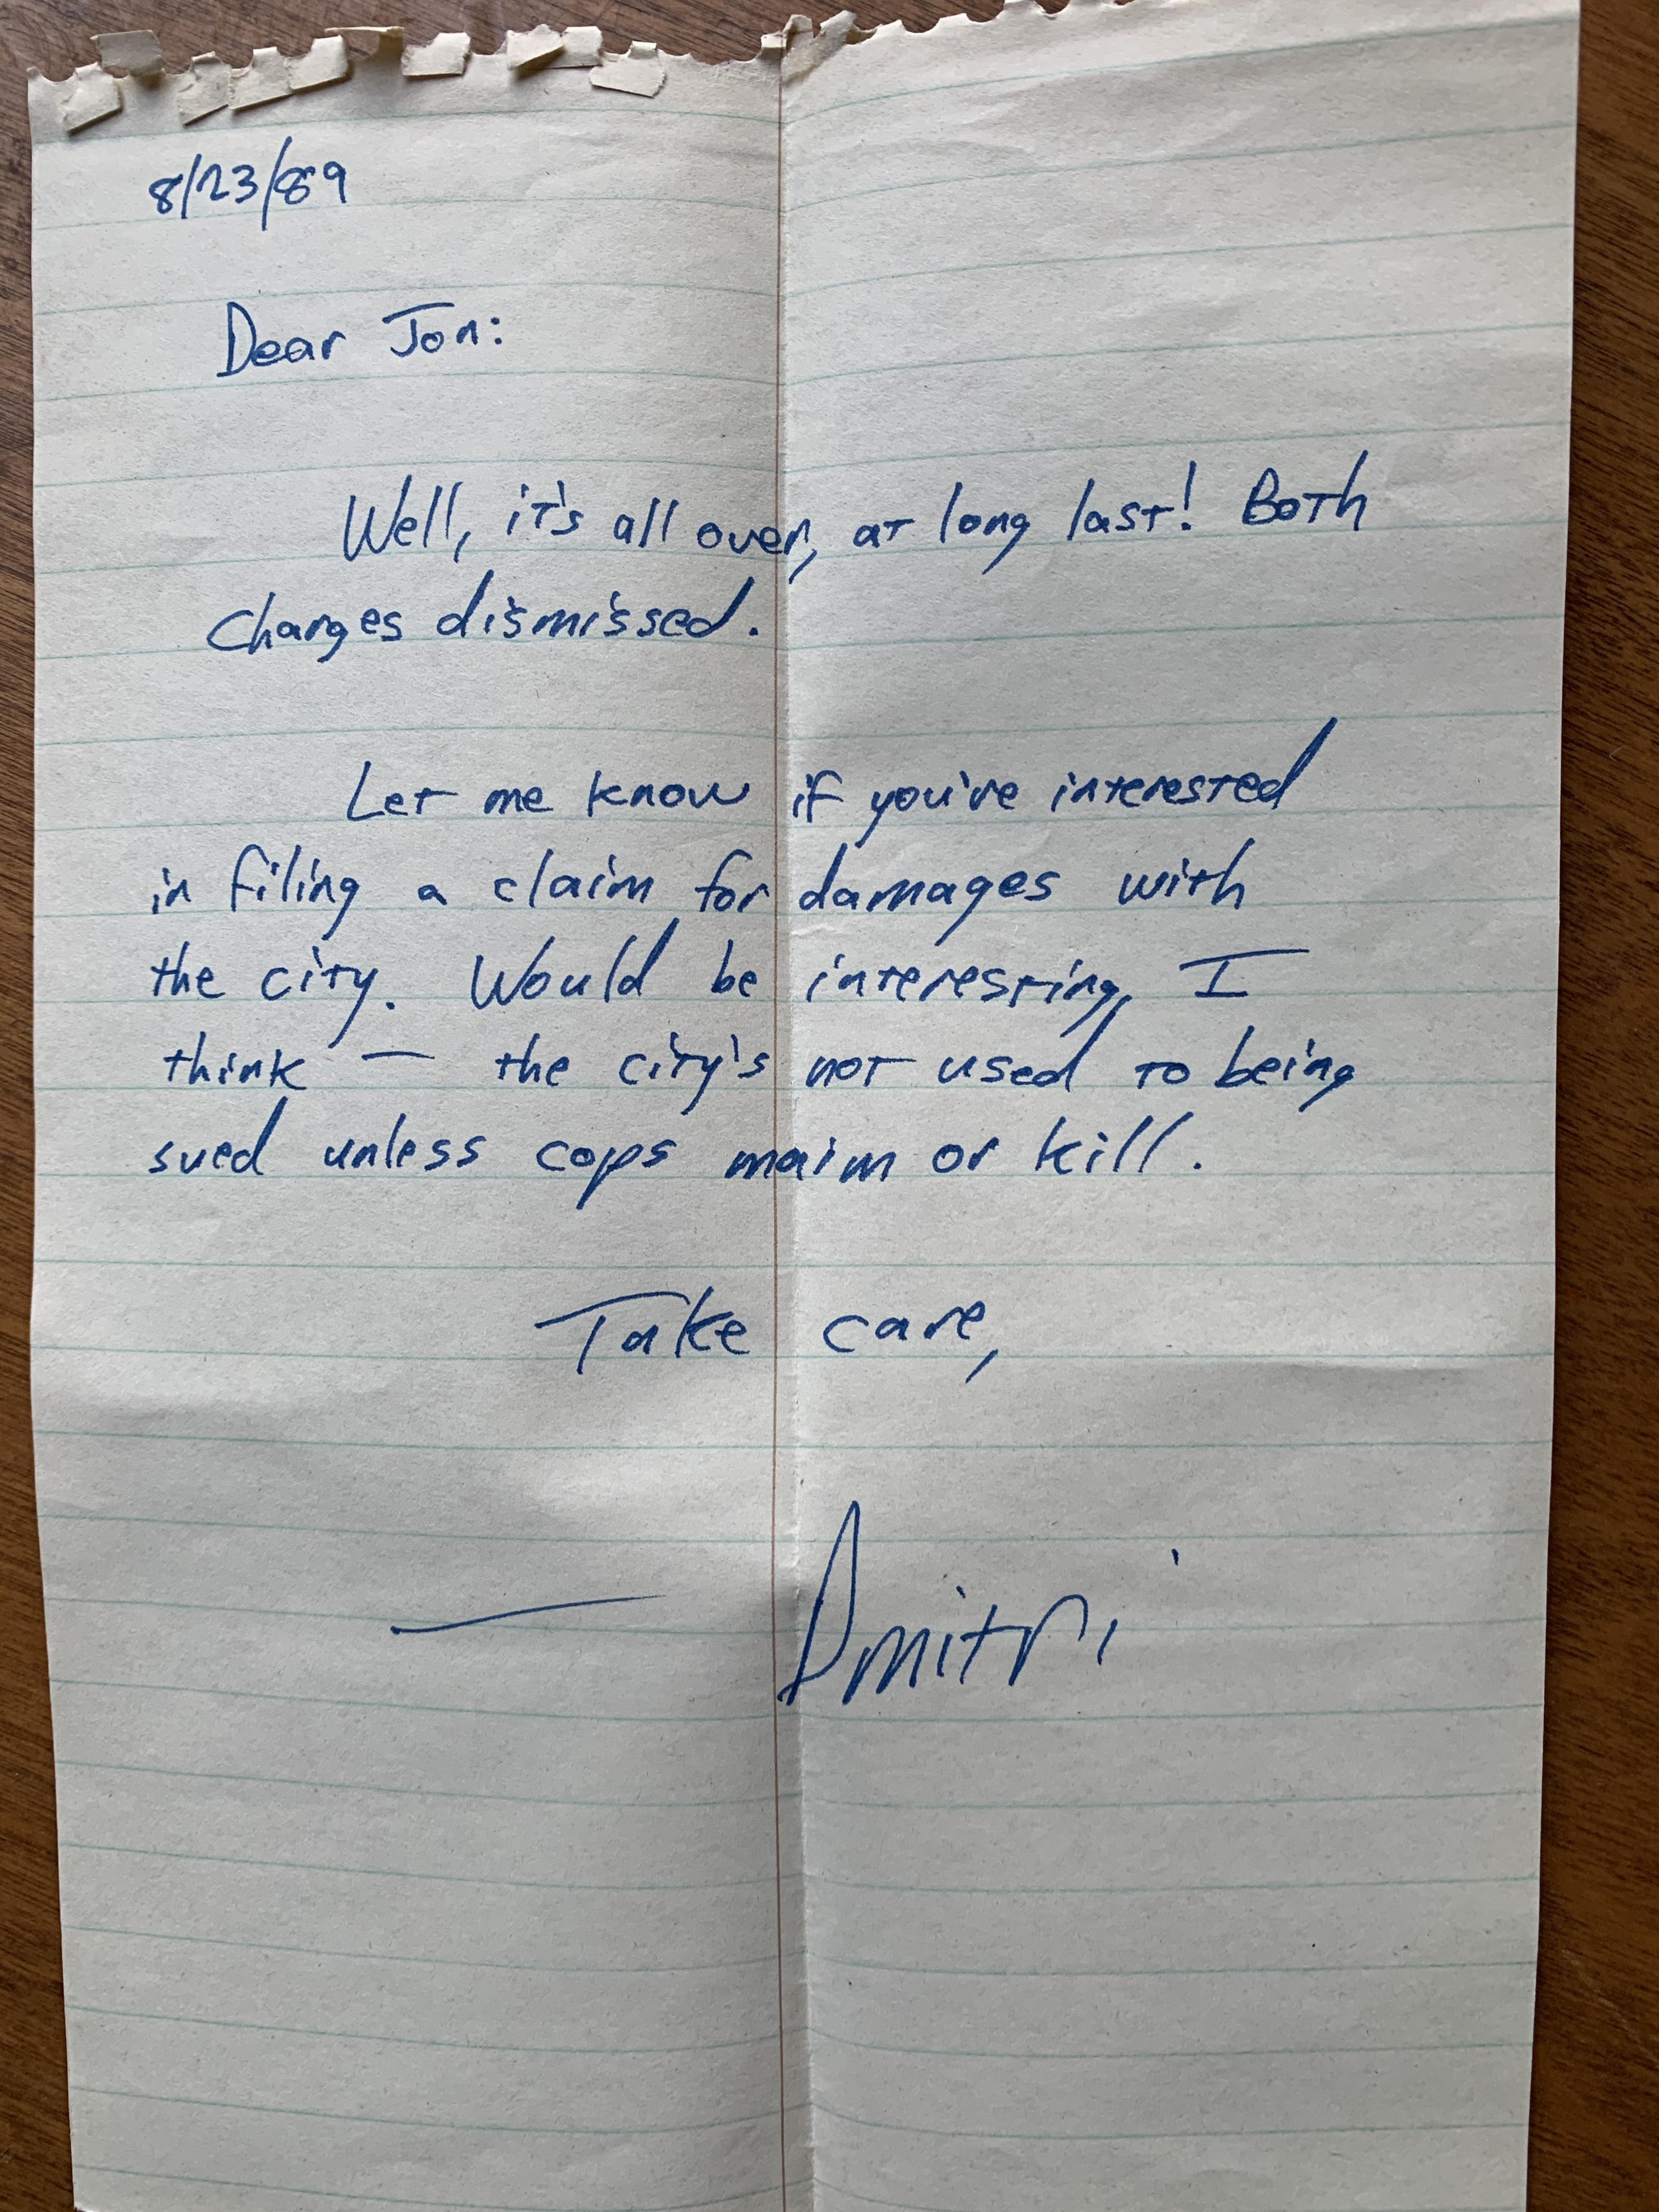 8/23/89
Dear Jon:
Well, it's all over, at long last! Both
charges dismissed.
Let me know if you're interested
in filing a claim for damages with
the city. Would be interesting, I
think — the city's not used to being
sued unless cops maim or kill.
Take care,
— Dmitri